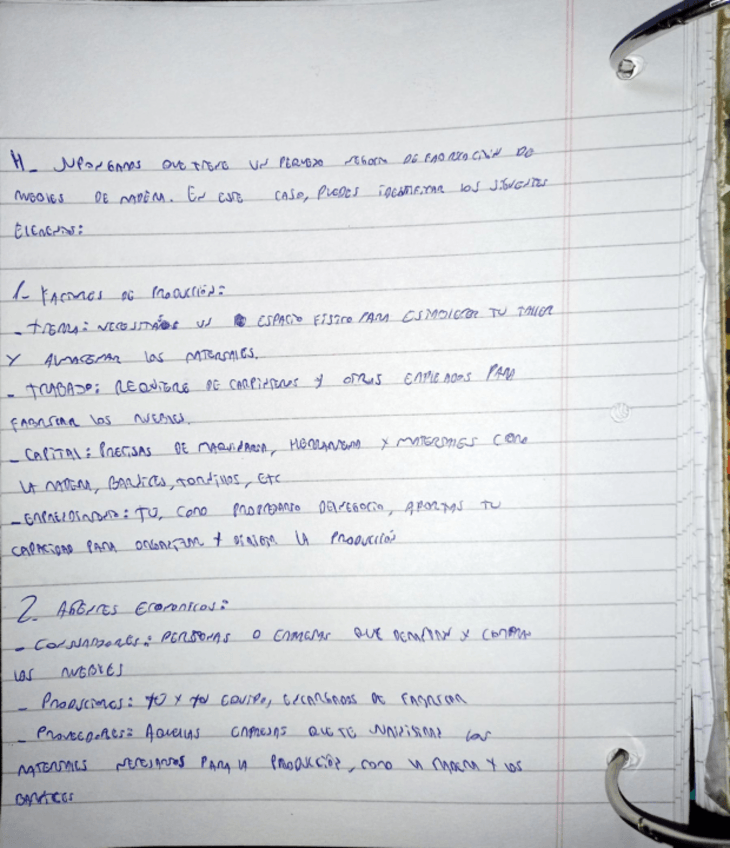 4_ SUPONGAMOS QUE TIENE UN PEQUEÑO NEGOCIO DE FABRICACIÓN DE
MUEBLES DE MADERA. EN ESTE CASO, PUEDES IDENTIFICAR LOS SIGUIENTES
ELEMENTOS:
1- FACTORES DE PRODUCCIÓN:
- TIERRA: NECESITARÁS UN ESPACIO FÍSICO PARA ESTABLECER TU TALLER
Y ALMACENAR LOS MATERIALES.
- TRABAJO: REQUIERE DE CARPINTEROS Y OTROS EMPLEADOS PARA
FABRICAR LOS MUEBLES.
- CAPITAL: PRECISAS DE MAQUINARIA, HERRAMIENTA Y MATERIALES COMO
LA MADERA, BARNICES, TORNILLOS, ETC
- EMPRENDIMIENTO: TÚ, COMO PROPIETARIO DEL NEGOCIO, APORTAS TU
CAPACIDAD PARA ORGANIZAR Y DIRIGIR LA PRODUCCIÓN
2. AGENTES ECONOMICOS:
- CONSUMIDORES: PERSONAS O EMPRESAS QUE DEMANDAN Y COMPRAN
LOS MUEBLES
- PRODUCTORES: TÚ Y TU EQUIPO, ENCARGADOS DE FABRICAR
- PROVEEDORES: AQUELLAS EMPRESAS QUE TE SUMINISTRAN LOS
MATERIALES NECESARIOS PARA LA PRODUCCIÓN, COMO LA MADERA Y LOS
BARNICES